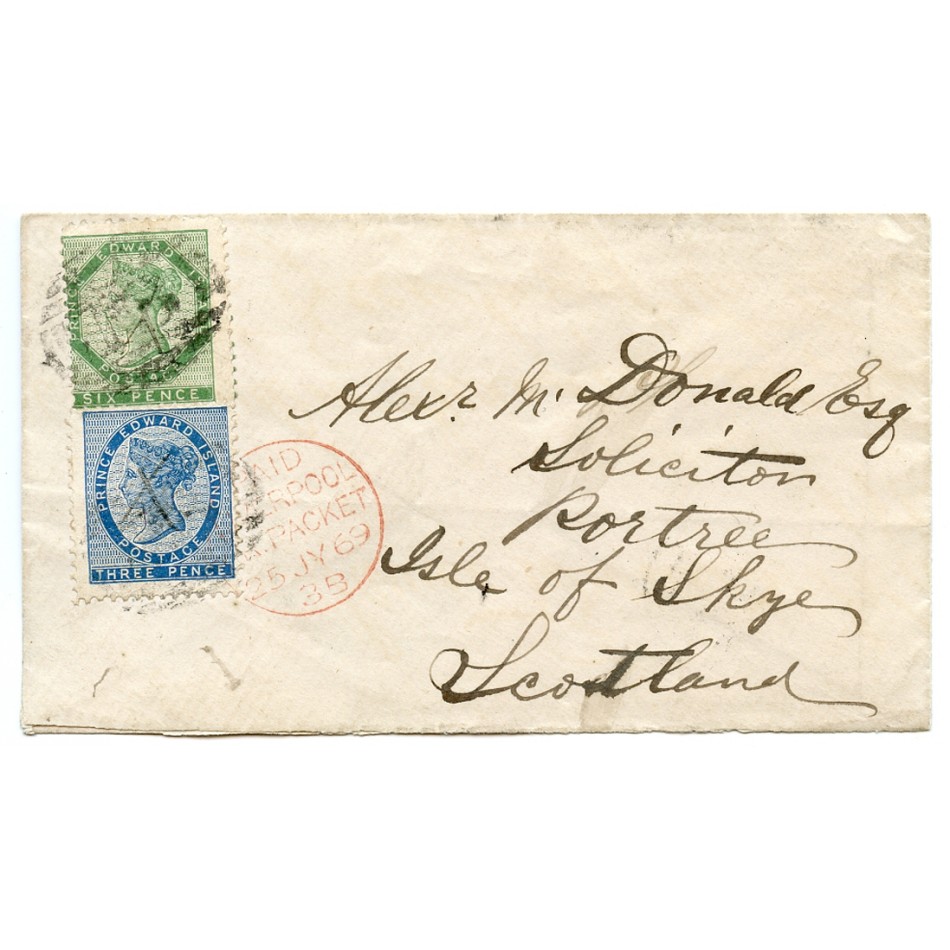 PRINCE EDWARD ISLAND
POSTAGE
SIX PENCE
PRINCE EDWARD ISLAND
POSTAGE
THREE PENCE
AID
ERPOOL
PACKET
25 JY 69
3B
Alexr. Mc Donald Esq
Solicitor
Portree
Isle of Skye
Scotland